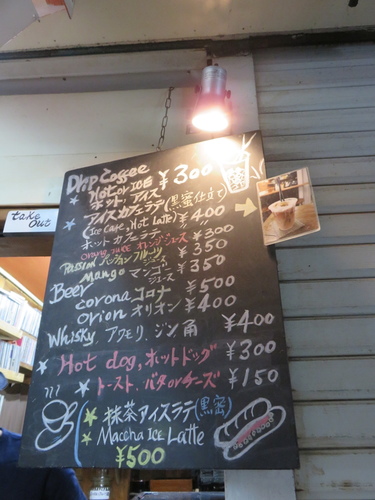 take out
Drip Coffee
Hot or ICE ¥300
ホット・アイス
アイスカフェラテ(黒蜜仕立て)
(Ice Cafe, Hot Latte) ¥400
ホットカフェラテ 〃 〃
orange juice オレンジジュース ¥300
PASSION パッションフルーツジュース ¥350
Mango マンゴージュース ¥350
Beer
corona コロナ ¥500
orion オリオン ¥400
Whisky アワモリ、ジン角 ¥400
Hot dog, ホットドッグ ¥300
トースト、バターorチーズ ¥150
抹茶アイスラテ(黒蜜)
Maccha Ice Latte
¥500